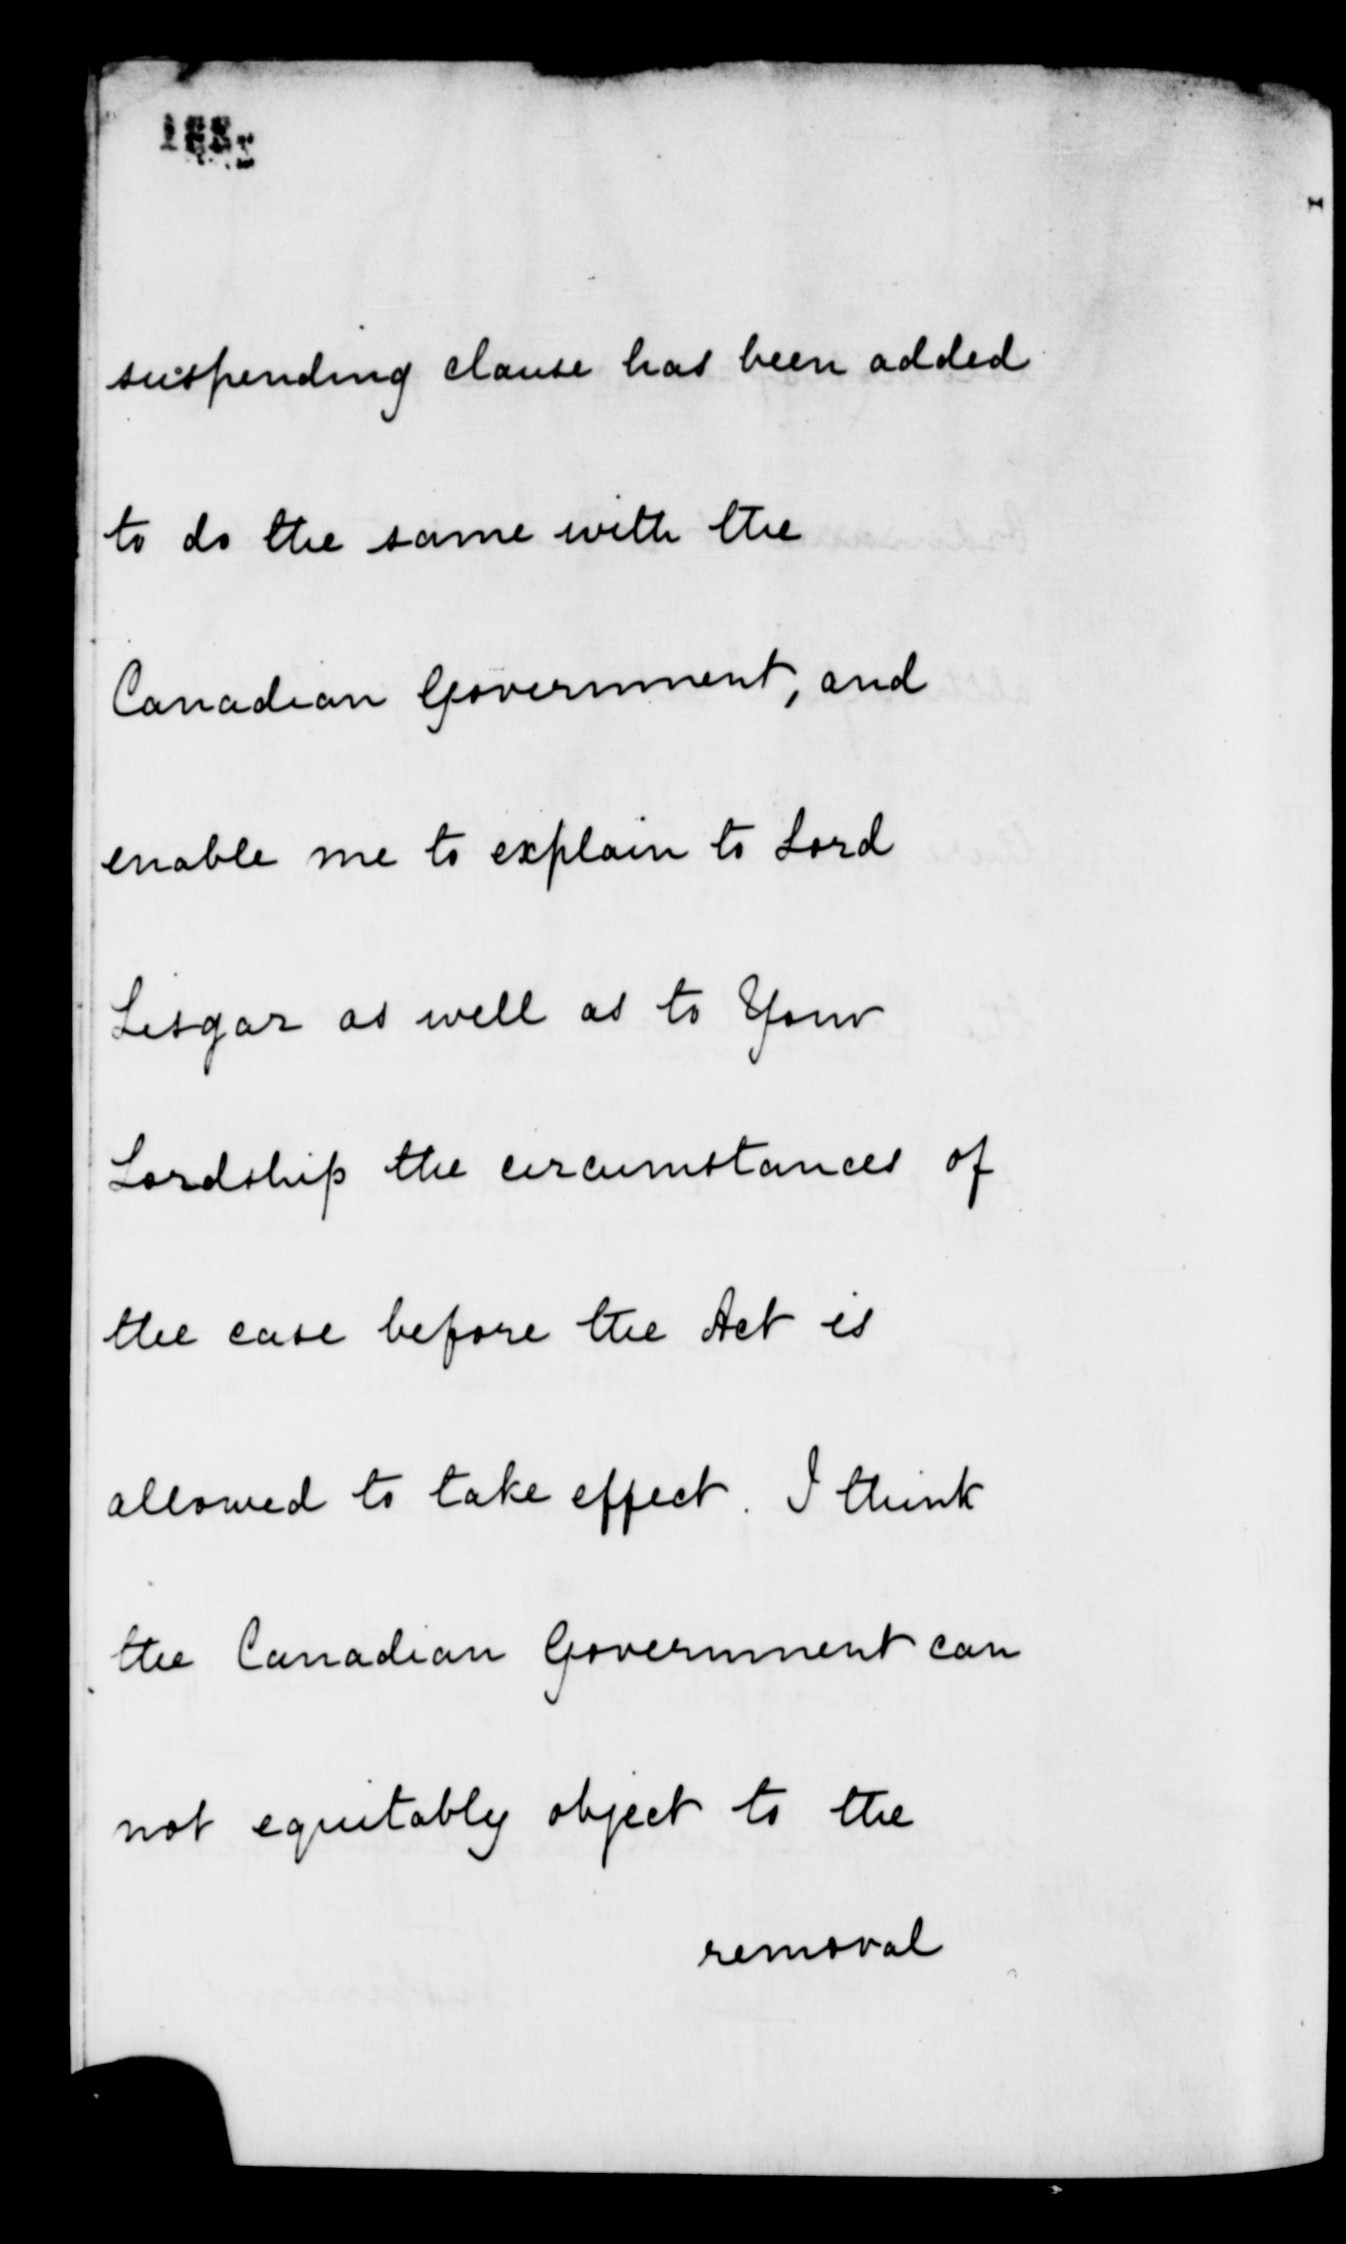 suspending clause has been added
to do the same with the
Canadian Government, and
enable me to explain to Lord
Lisgar as well as to Your
Lordship the circumstances of
the case before the Act is
allowed to take effect. I think
the Canadian Government can
not equitably object to the
removal